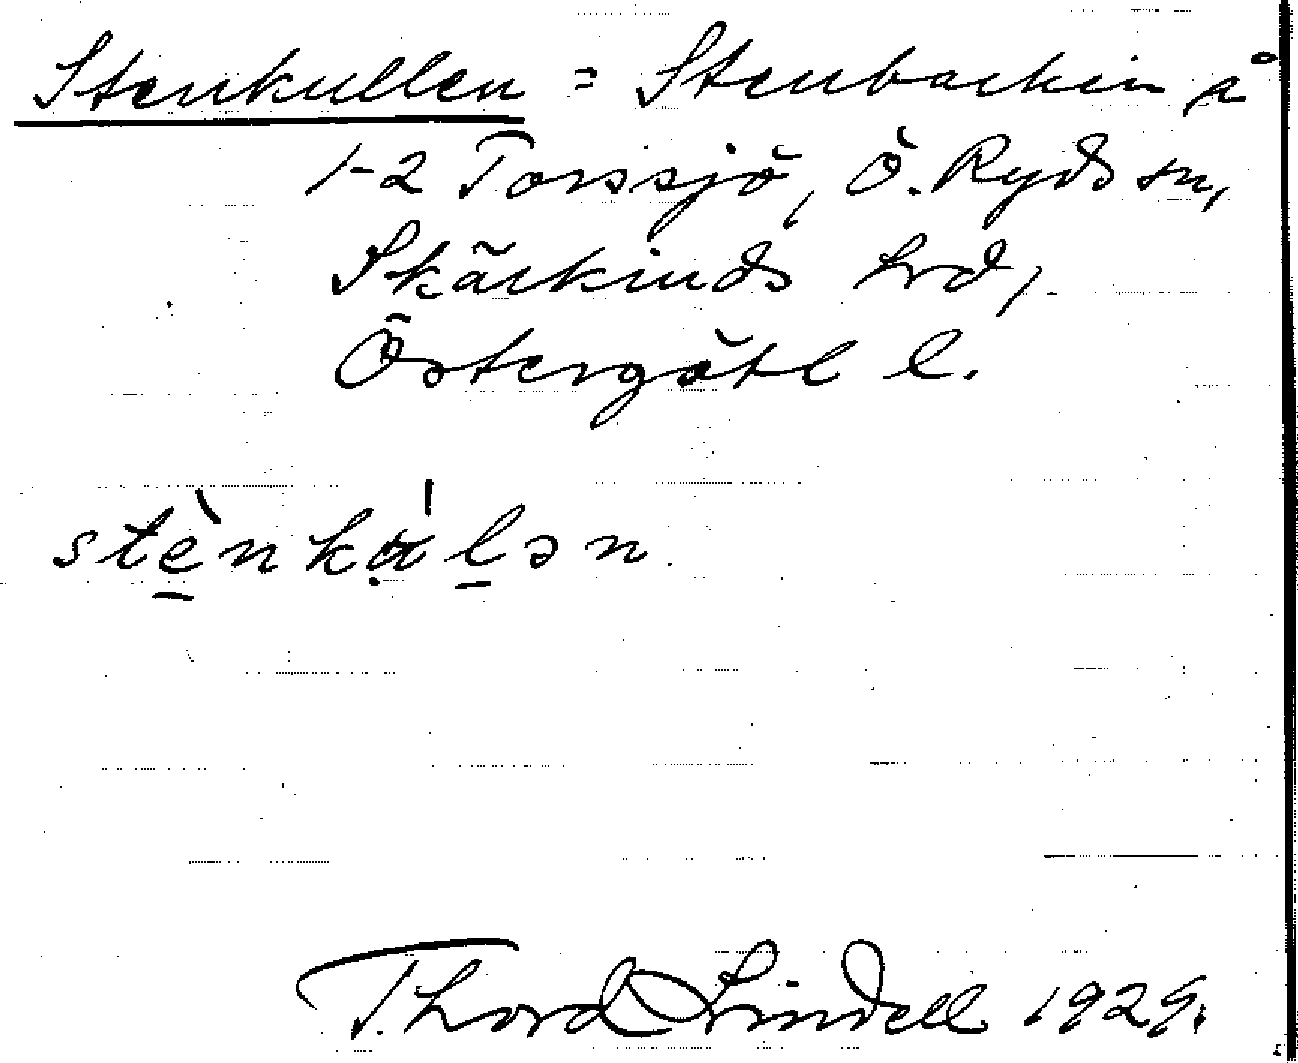 Stenkullen = Stenbacken å
1-2 Torssjö, Ö. Ryds sn,
Skärkinds hrd,
Östergötl l.
stènkálən
Thord Lindell 1929.